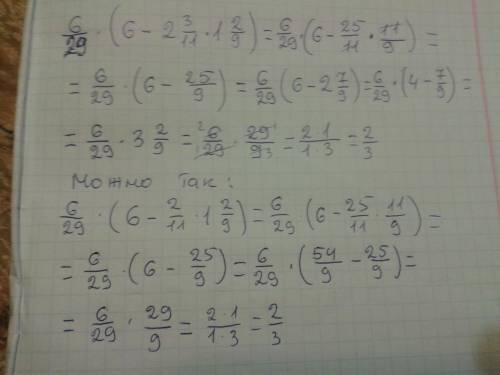 6/29 · (6 - 2 3/11 · 1 2/9) = 6/29 · (6 - 25/11 · 11/9) =
= 6/29 · (6 - 25/9) = 6/29 (6 - 2 7/9) = 6/29 · (4 - 7/9) =
= 6/29 · 3 2/9 = 6/29 · 29/9 = 2·1/1·3 = 2/3
Можно так:
6/29 · (6 - 2/11 · 1 2/9) = 6/29 · (6 - 25/11 · 11/9) =
= 6/29 · (6 - 25/9) = 6/29 · (54/9 - 25/9) =
= 6/29 · 29/9 = 2·1/1·3 = 2/3